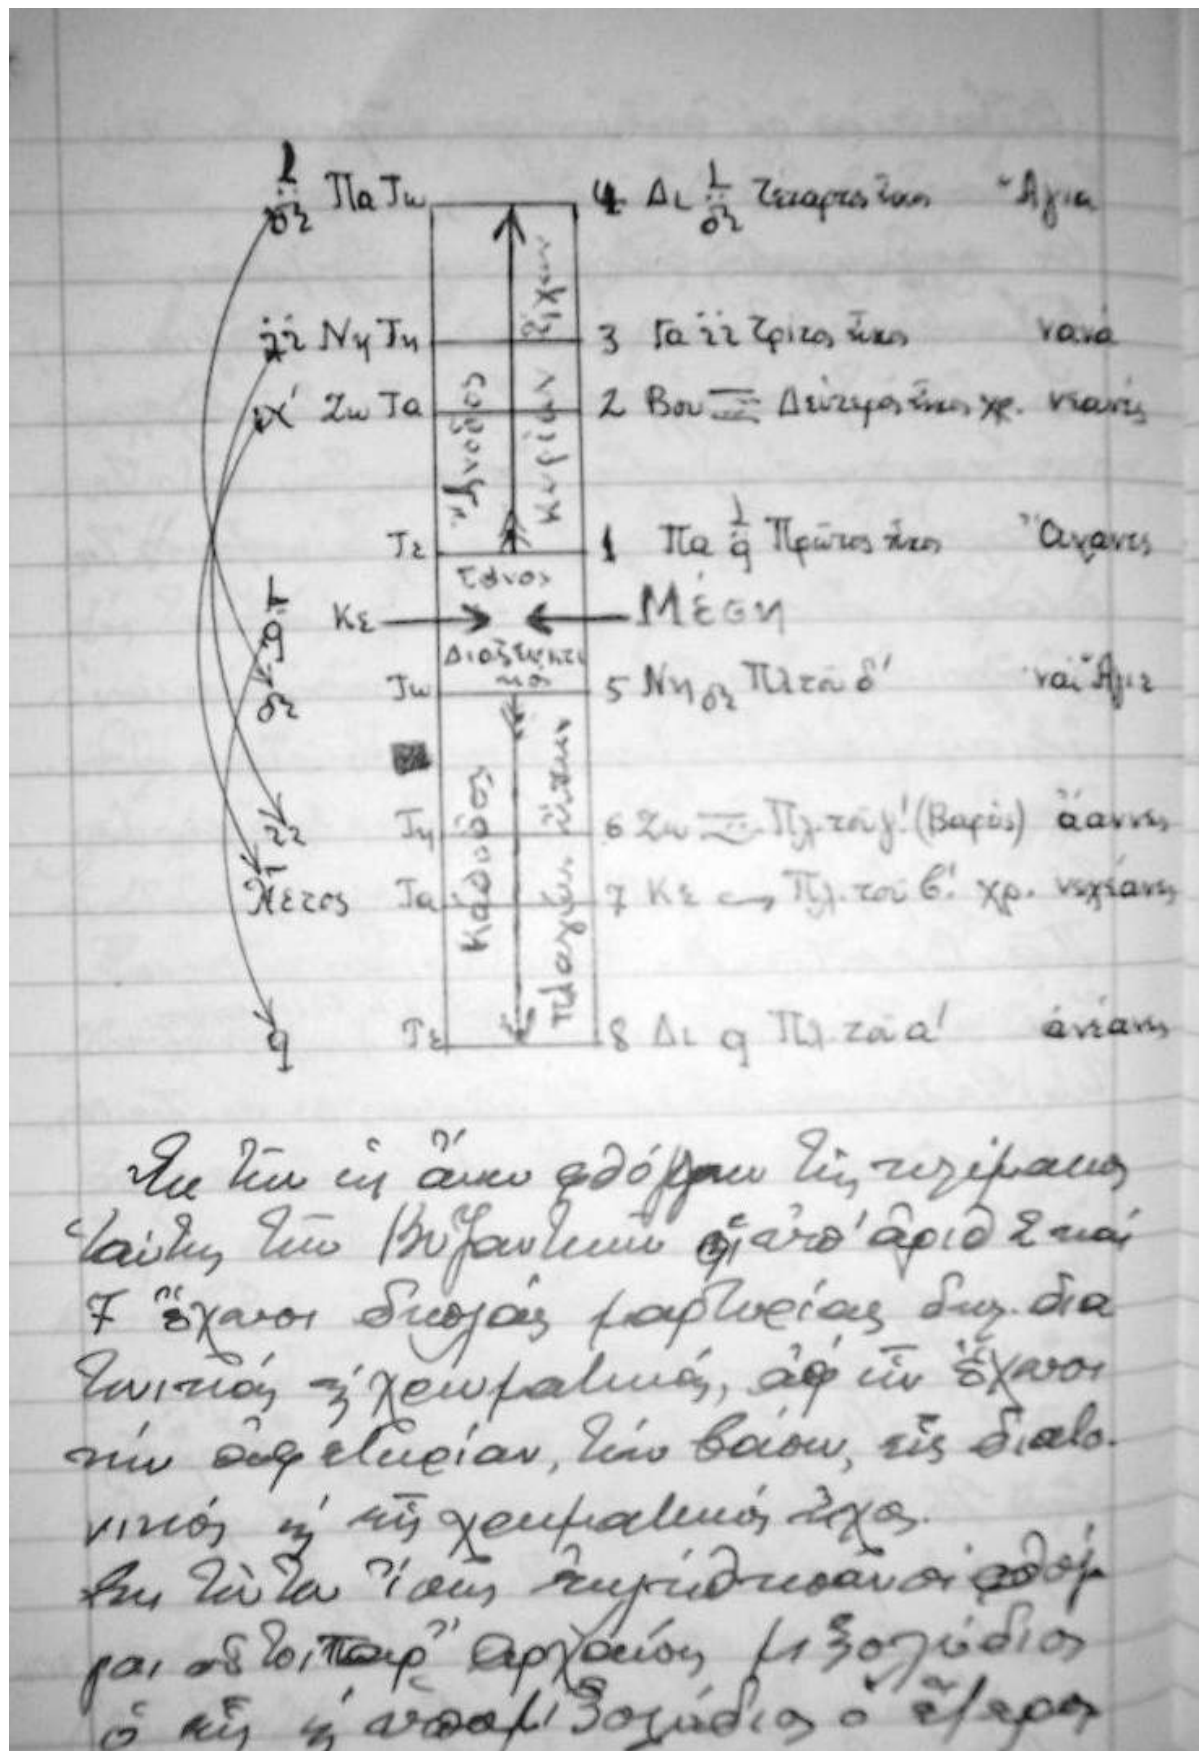 Πα Τω 4 Δι Τέταρτος ἦχος Ἅγια
Νη Τη 3 Γα Τρίτος ἦχος νανά
Ζω Τα 2 Βου Δεύτερος ἦχος χρ. νεανές
Τε 1 Πα Πρῶτος ἦχος Ἄνανες
Ἄνοδος Κυρίων ἤχων
Τόνος
Κε Μέση
Διαζευκτι
κός
Τω 5 Νη Πλ τοῦ δ' ναὶ Ἅγιε
Τη 6 Ζω Πλ. τοῦ γ' (Βαρύς) ἄαννες
Νέτος Τα 7 Κε Πλ. τοῦ β'. χρ. νεχέανες
Τε 8 Δι q Πλ. τοῦ α' ἀνέανες
Κάθοδος Πλαγίων ἤχων
Ἐκ τῶν ἄνω φθόγγων τῆς κλίμακος
ταύτης τῶν Βυζαντινῶν οἱ ὑπ' ἀριθ 2 καὶ
7 ἔχουσι διπλᾶς μαρτυρίας δηλ. δια
τονικάς ἢ χρωματικάς, ἀφ' ὧν ἔχουσι
τὴν ἀφετηρίαν, τὴν βάσιν, εἷς διατο-
νικός ἢ εἷς χρωματικός ἦχος.
ἐκ τούτου ἴσως ἐκλήθησαν οἱ φθόγ
γοι οὗτοι παρ' ἀρχαίοις μιξολύδιος
ὁ εἷς ἢ ὑπομιξολύδιος ὁ ἕτερος